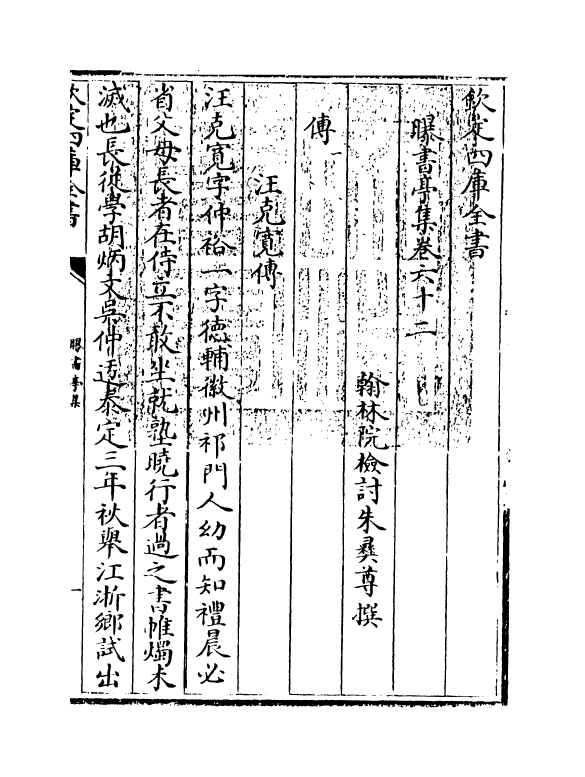 欽定四庫全書
曝書亭集卷六十二
翰林院檢討朱彛尊撰
傳一
汪克寛傳
汪克寛字仲裕一字德輔徽州祁門人幼而知禮晨必
省父母長者在侍立不敢坐就塾曉行者過之書帷燭未
滅也長從學胡炳文吳仲迂泰定三年秋舉江浙鄉試出
欽定四庫全書
曝書亭集
一